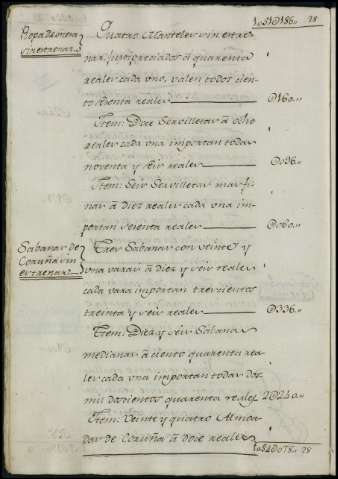 1„510186„ 28
Ropa de mesa
sin extrenar
Quatro Manteles sin extre
nar, apreciados á quarenta
reales cada uno, valen todos cien-
to sesenta reales
0160„
Item: Doce Servilletas á ocho
reales cada una importan todas
noventa y seis reales
0096„
Item: Seis Servilletas mas fi-
nas á diez reales cada una im-
portan sesenta reales
0060„
Sabanas de
Coruña sin
extrenar
Tres Sabanas con veinte y
una varas á diez y seis reales
cada vara importan trescientos
treinta y seis reales
0336„
Item: Diez y seis Sabanas
medianas á ciento quarenta rea-
les cada una importan todas dos
mil doscientos quarenta reales
20240„
Item: Veinte y quatro Almoa-
das de Coruña á doce reales
1„540078„ 28